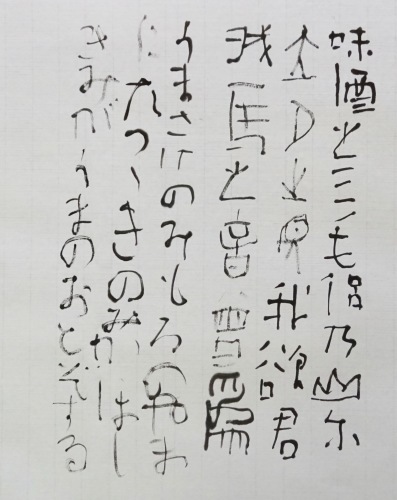 味酒之三毛侶乃山尓
立月之見我欲君
我馬之音曽為
うまさけのみもろのやま
にたつゝきのみがほし
きみがうまのおとぞする